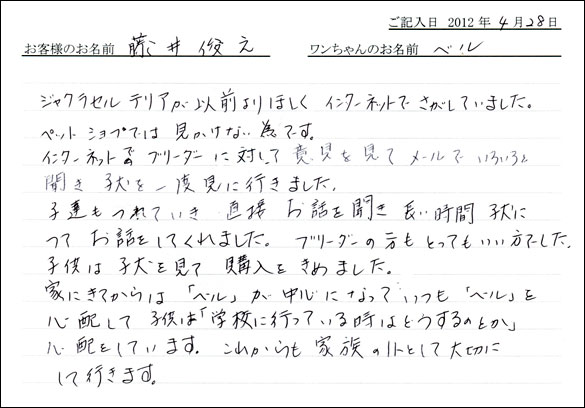 ご記入日 2012年4月28日
お客様のお名前 藤井俊え ワンちゃんのお名前 ベル
ジャクラセル テリアが以前よりほしく インターネットで さがしていました。
ペット ショプでは 見かけない為です。
インターネットでの ブリーダーに対して 意見を見て メールで いろいろと
聞き 子犬を一度見に行きました。
子達もつれていき 直接 お話を聞き 長い時間 子犬に
つて お話をしてくれました。 ブリーダーの方も とってもいい方でした。
子供は 子犬を見て 購入をきめました。
家にきてからは 「ベル」が中心になって いつも 「ベル」を
心配して 子供は「学校に行っている時はどうするのとか」
心配をしています。 これからも 家族の1人として 大切に
して行きます。